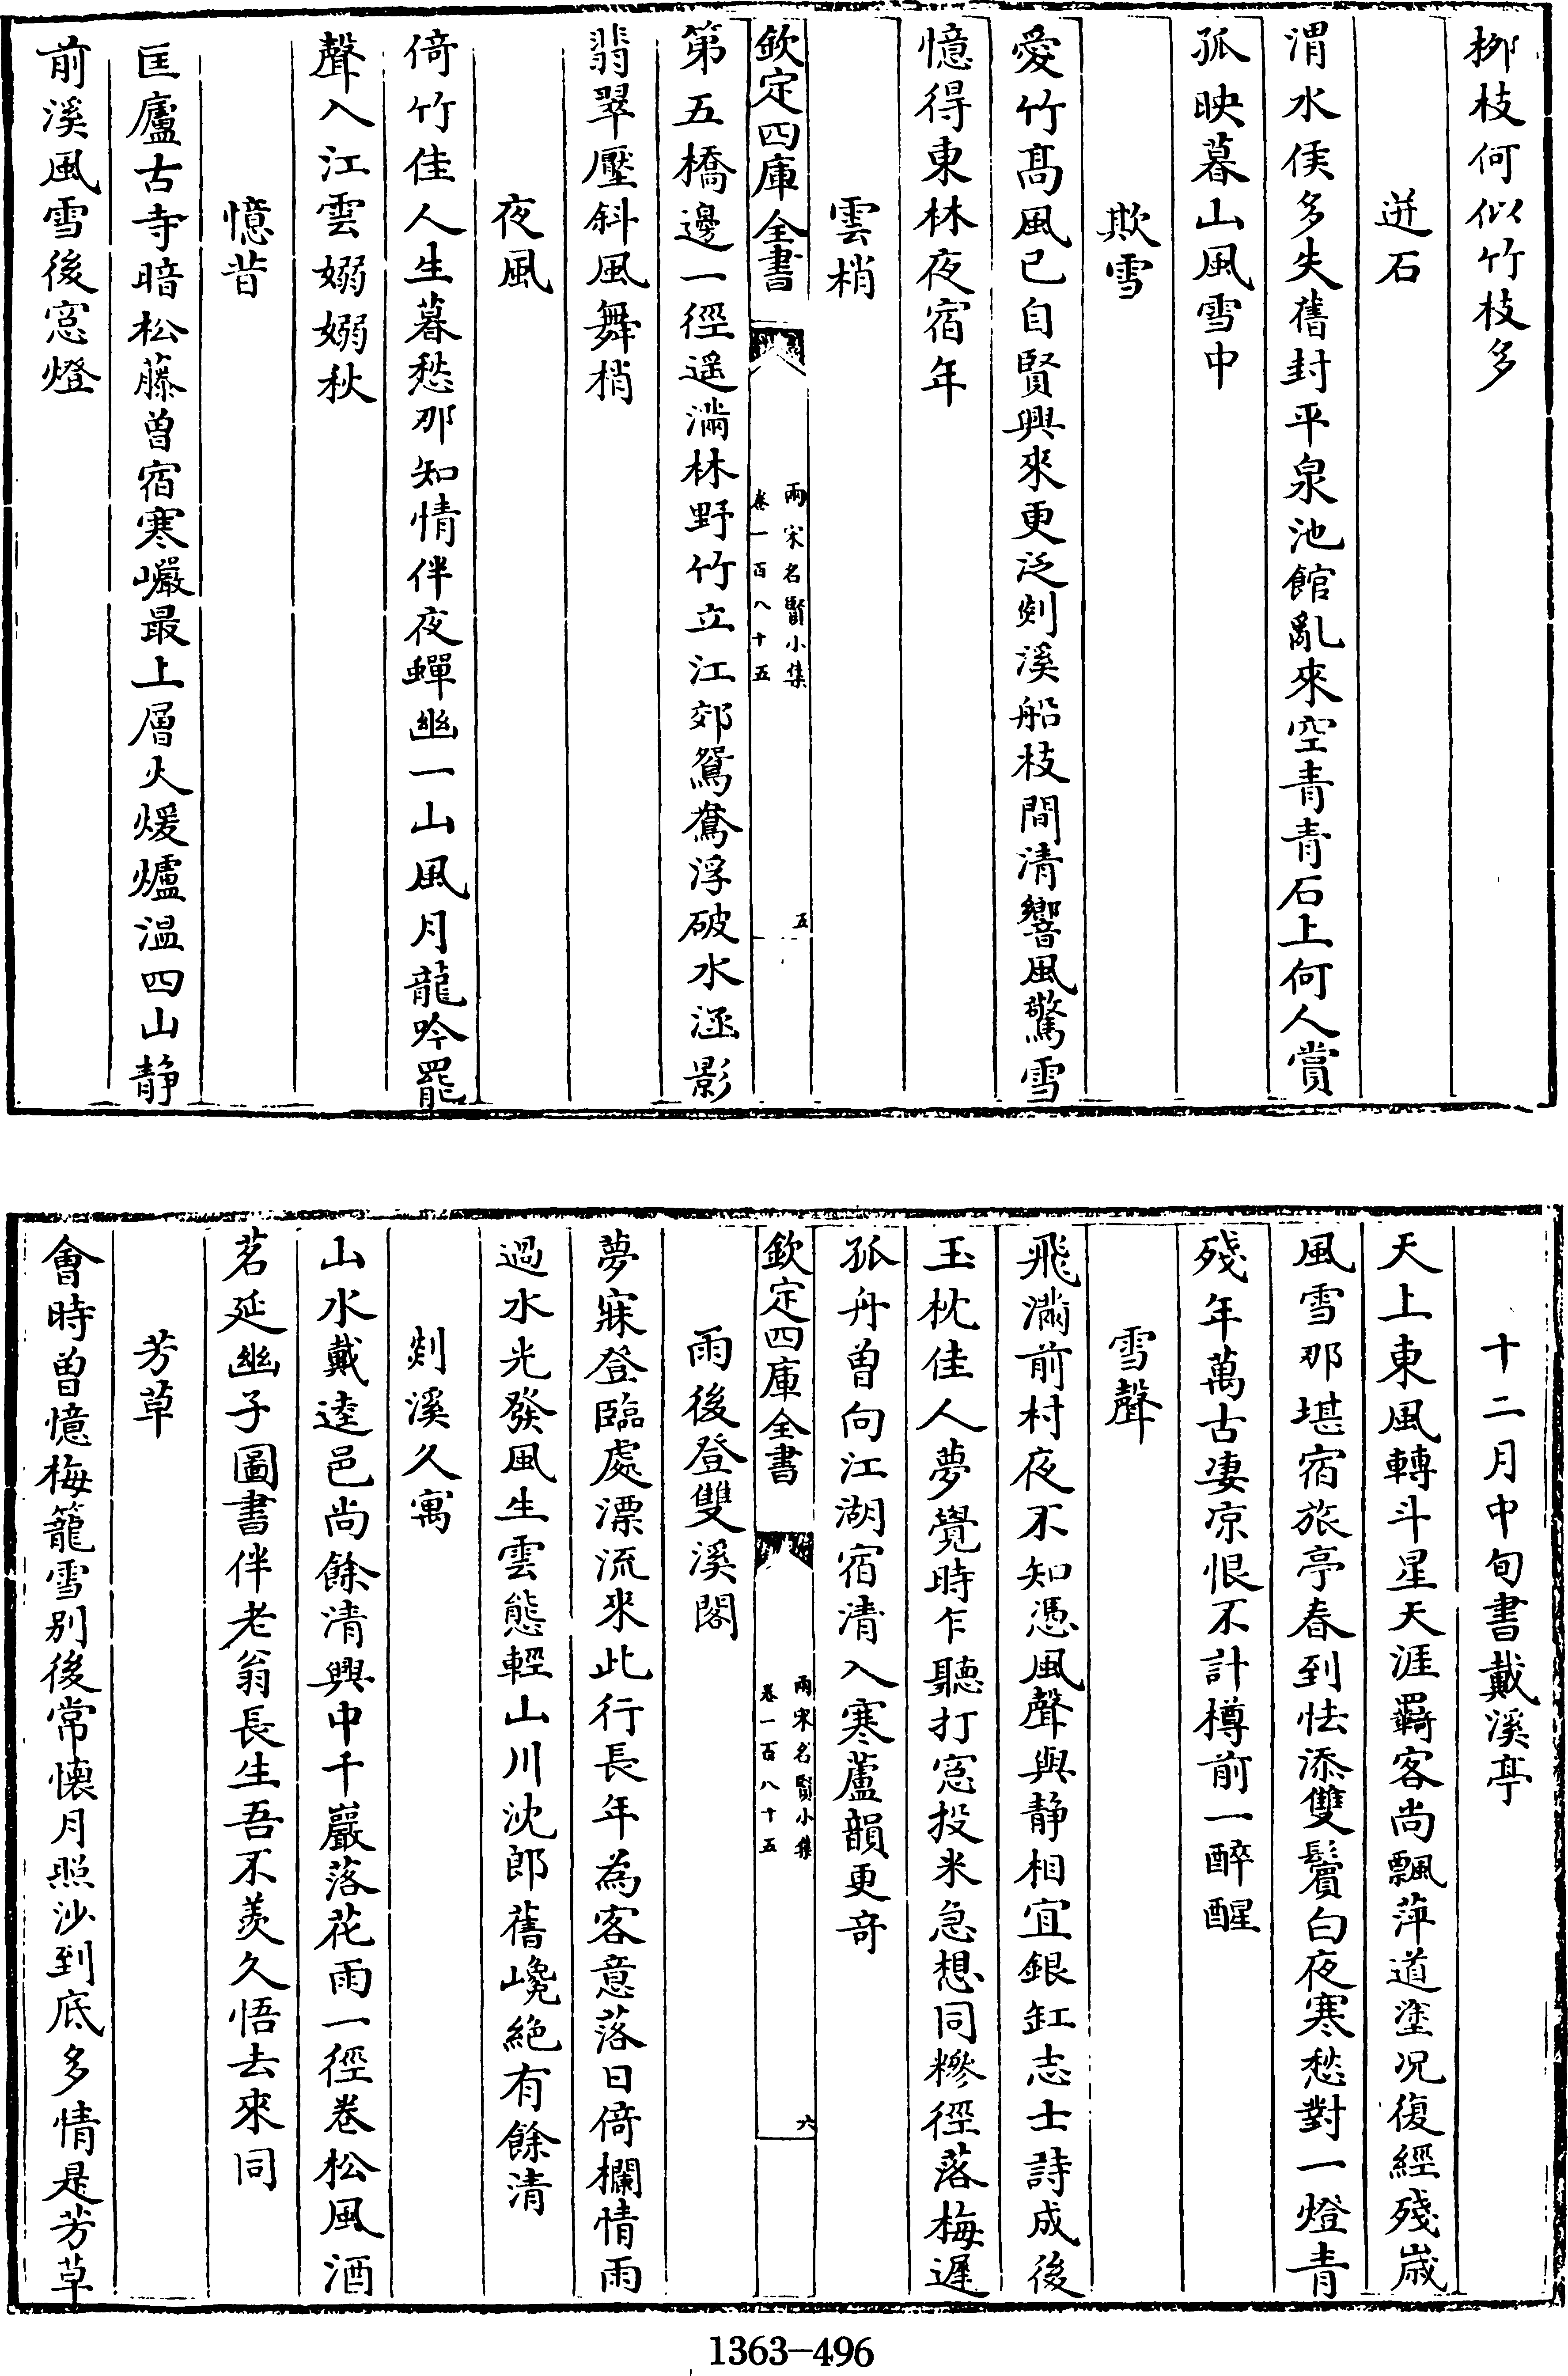 柳枝何似竹枝多
迸石
渭水侯多失舊封平泉池館亂來空青青石上何人賞
孤映暮山風雪中
欺雪
愛竹髙風已自賢興來更泛剡溪船枝間清響風驚雪
憶得東林夜宿年
雲梢
欽定四庫全書
兩宋名賢小集
卷一百八十五
五
第五橋邊一徑遥滿林野竹立江郊鴛鴦浮破水涵影
翡翠壓斜風舞梢
夜風
倚竹佳人生暮愁那知情伴夜蟬幽一山風月龍吟罷
聲入江雲嫋嫋秋
憶昔
匡廬古寺暗松藤曽宿寒巗最上層火煖爐温四山静
前溪風雪後窓燈
十二月中旬書戴溪亭
天上東風轉斗星天涯羇客尚飄萍道塗况復經殘嵗
風雪那堪宿旅亭春到怯添雙鬢白夜寒愁對一燈青
殘年萬古凄凉恨不計樽前一醉醒
雪聲
飛滿前村夜不知憑風聲與静相宜銀缸志士詩成後
玉枕佳人夢覺時乍聽打窓投米急想同糝徑落梅遲
孤舟曽向江湖宿清入寒蘆韻更竒
欽定四庫全書
兩宋名賢小集
卷一百八十五
六
雨後登雙溪閣
夢寐登臨處漂流來此行長年為客意落日倚欄情雨
過水光發風生雲態輕山川沈郎舊巉絶有餘清
剡溪久寓
山水戴逵邑尚餘清興中千巖落花雨一徑巻松風酒
茗延幽子圖書伴老翁長生吾不羡久悟去來同
芳草
會時曽憶梅籠雪别後常懐月照沙到底多情是芳草
1363-496